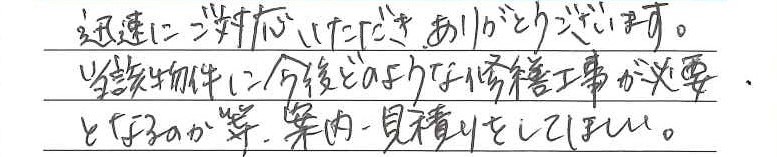 迅速にご対応いただき、ありがとうございます。
当該物件に今後どのような修繕工事が必要
となるのか等、案内・見積りをしてほしい。